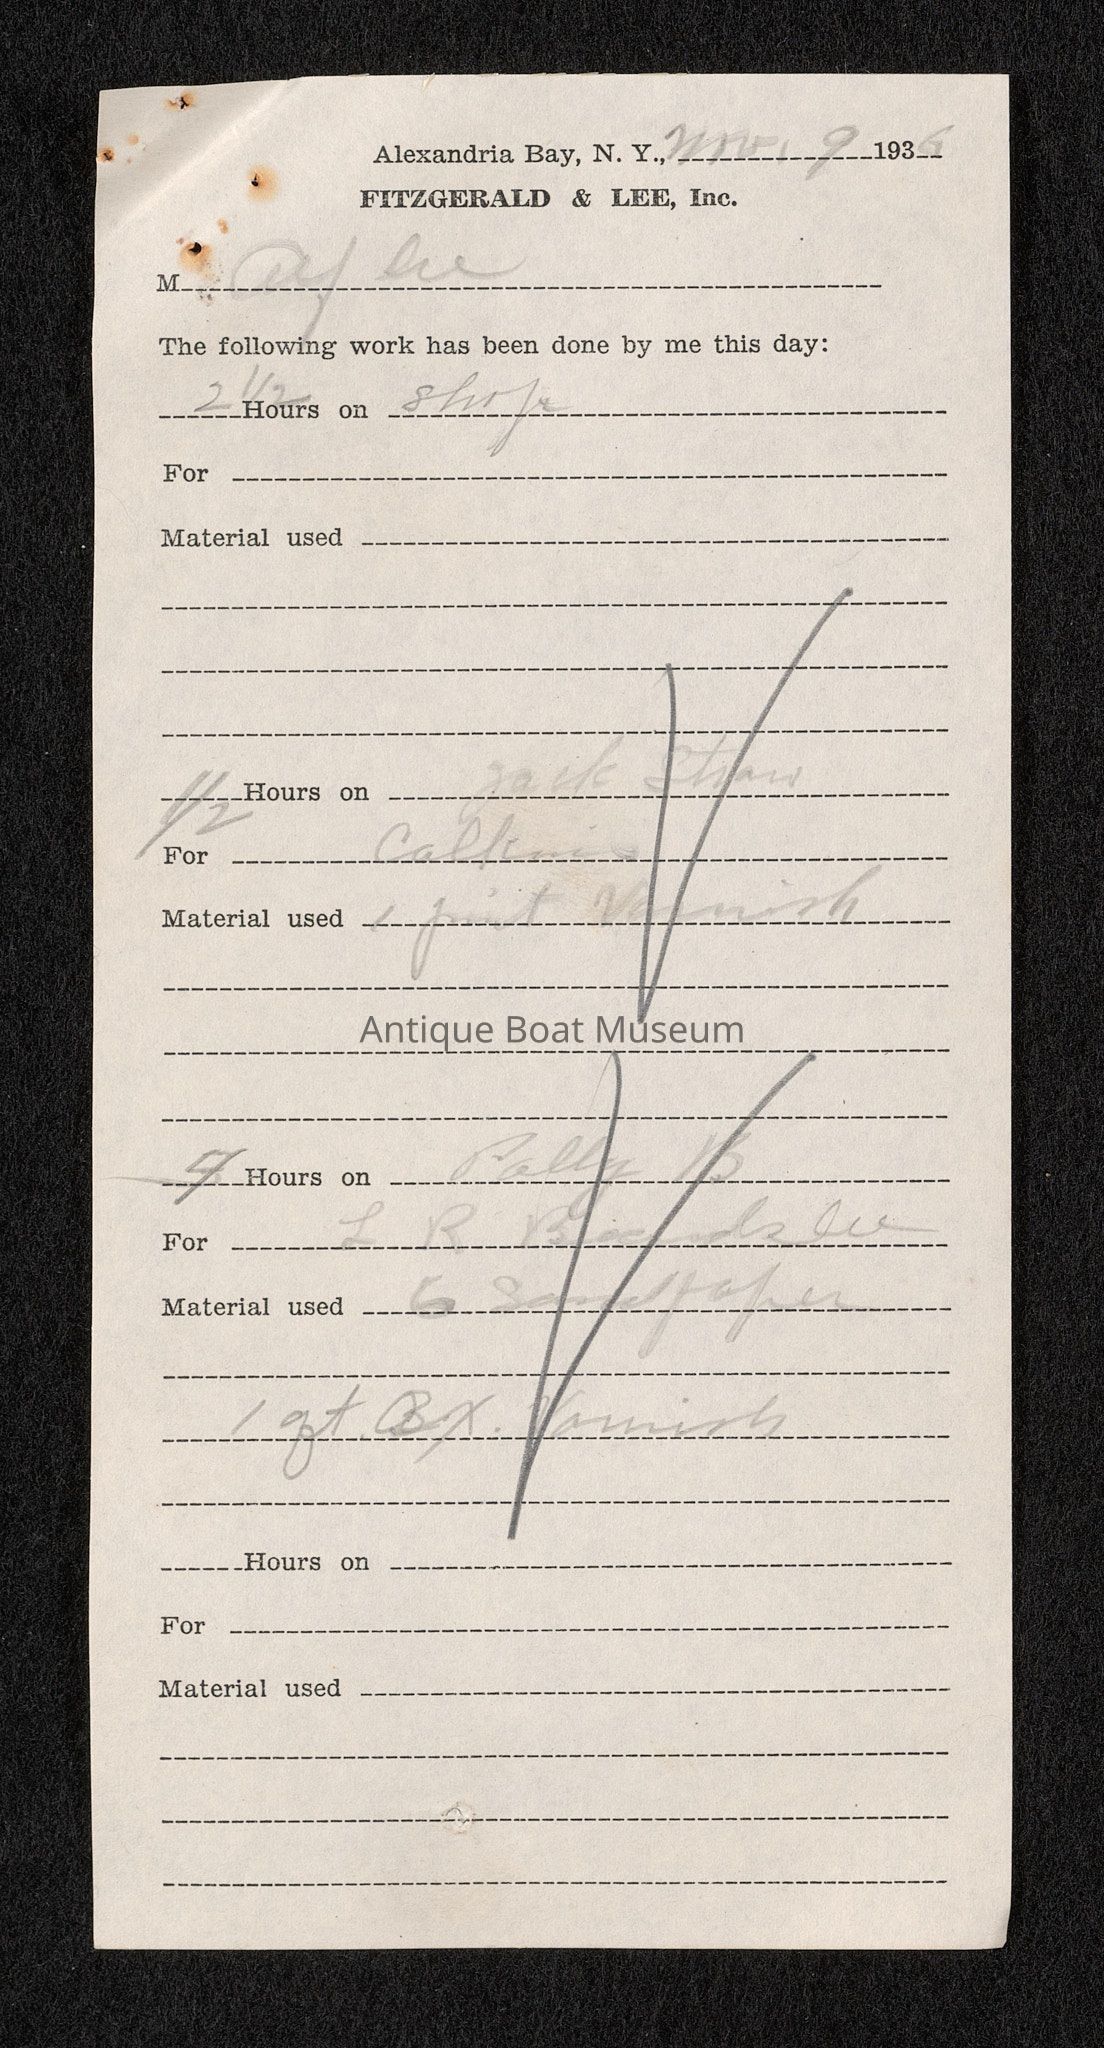 Alexandria Bay, N. Y., Nov. 9 1936
FITZGERALD & LEE, Inc.
M Lee
The following work has been done by me this day:
2 1/2 Hours on shop
For
Material used
1/2 Hours on Jack Straw
For Calkins
Material used 1 pint Varnish
Antique Boat Museum
Hours on Polly B
For L R Beardslee
Material used 6 Sandpaper
1 qt. Varnish
Hours on
For
Material used